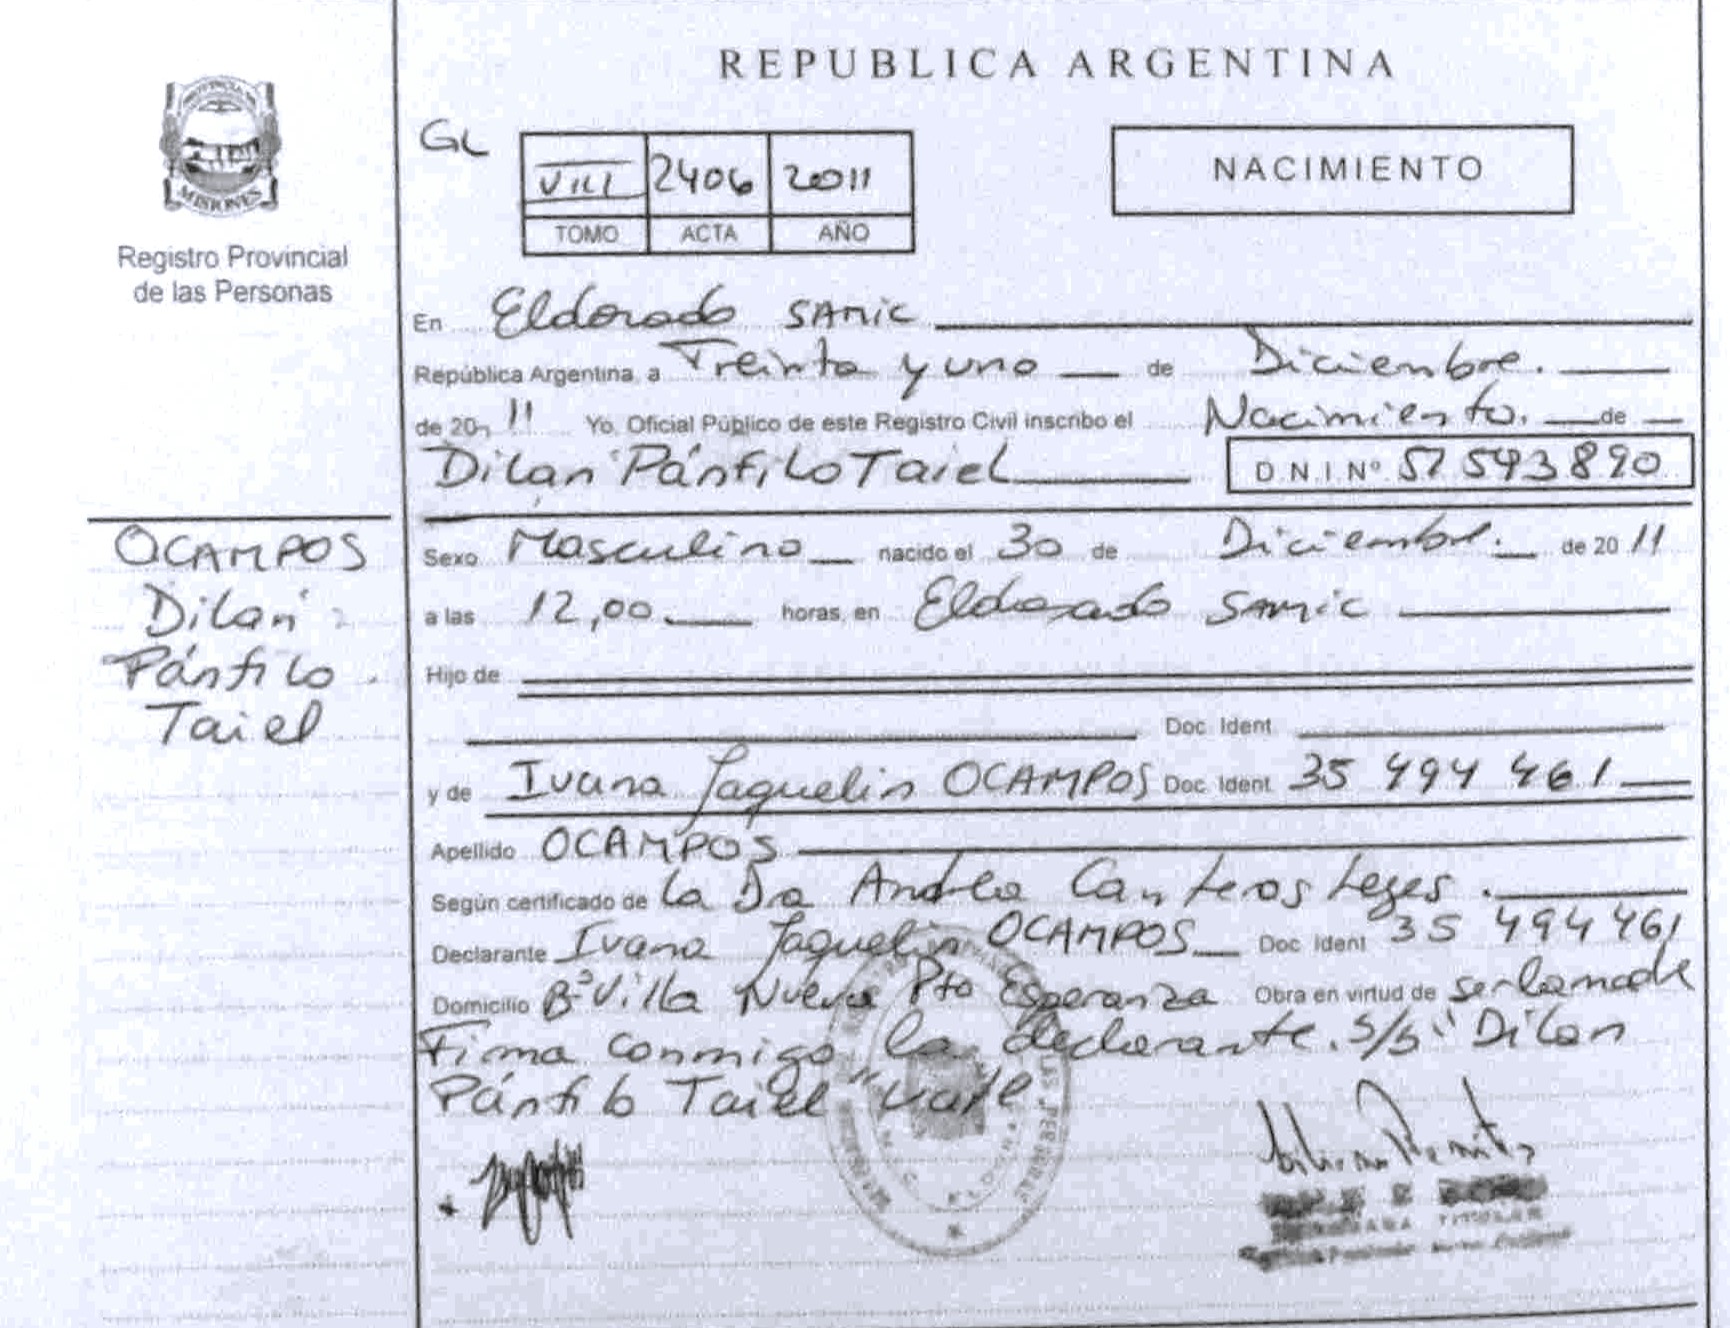 REPUBLICA ARGENTINA
PROVINCIA DE
MISIONES
Registro Provincial
de las Personas
GL
VIII 2406 2011
TOMO ACTA AÑO
NACIMIENTO
En Eldorado SAMIC
República Argentina, a Treinta y uno de Diciembre.
de 20 11 Yo, Oficial Público de este Registro Civil inscribo el Nacimiento. de
Dilan Pánfilo Taiel D.N.I. Nº 51 543 890
OCAMPOS
Dilan
Pánfilo
Taiel
Sexo Masculino nacido el 30 de Diciembre. de 20 11
a las 12,00 horas, en Eldorado SAMIC
Hijo de
Doc. Ident.
y de Ivana Jaquelin OCAMPOS Doc. Ident. 35 494 461
Apellido OCAMPOS
Según certificado de la Dra Andrea Canteros
Declarante Ivana Jaquelin OCAMPOS Doc. Ident. 35 494 461
Domicilio Bº Villa Nueva Pto Esperanza Obra en virtud de ser la madre
Firma conmigo la declarante. S/b "Dilan
Pánfilo Taiel" vale